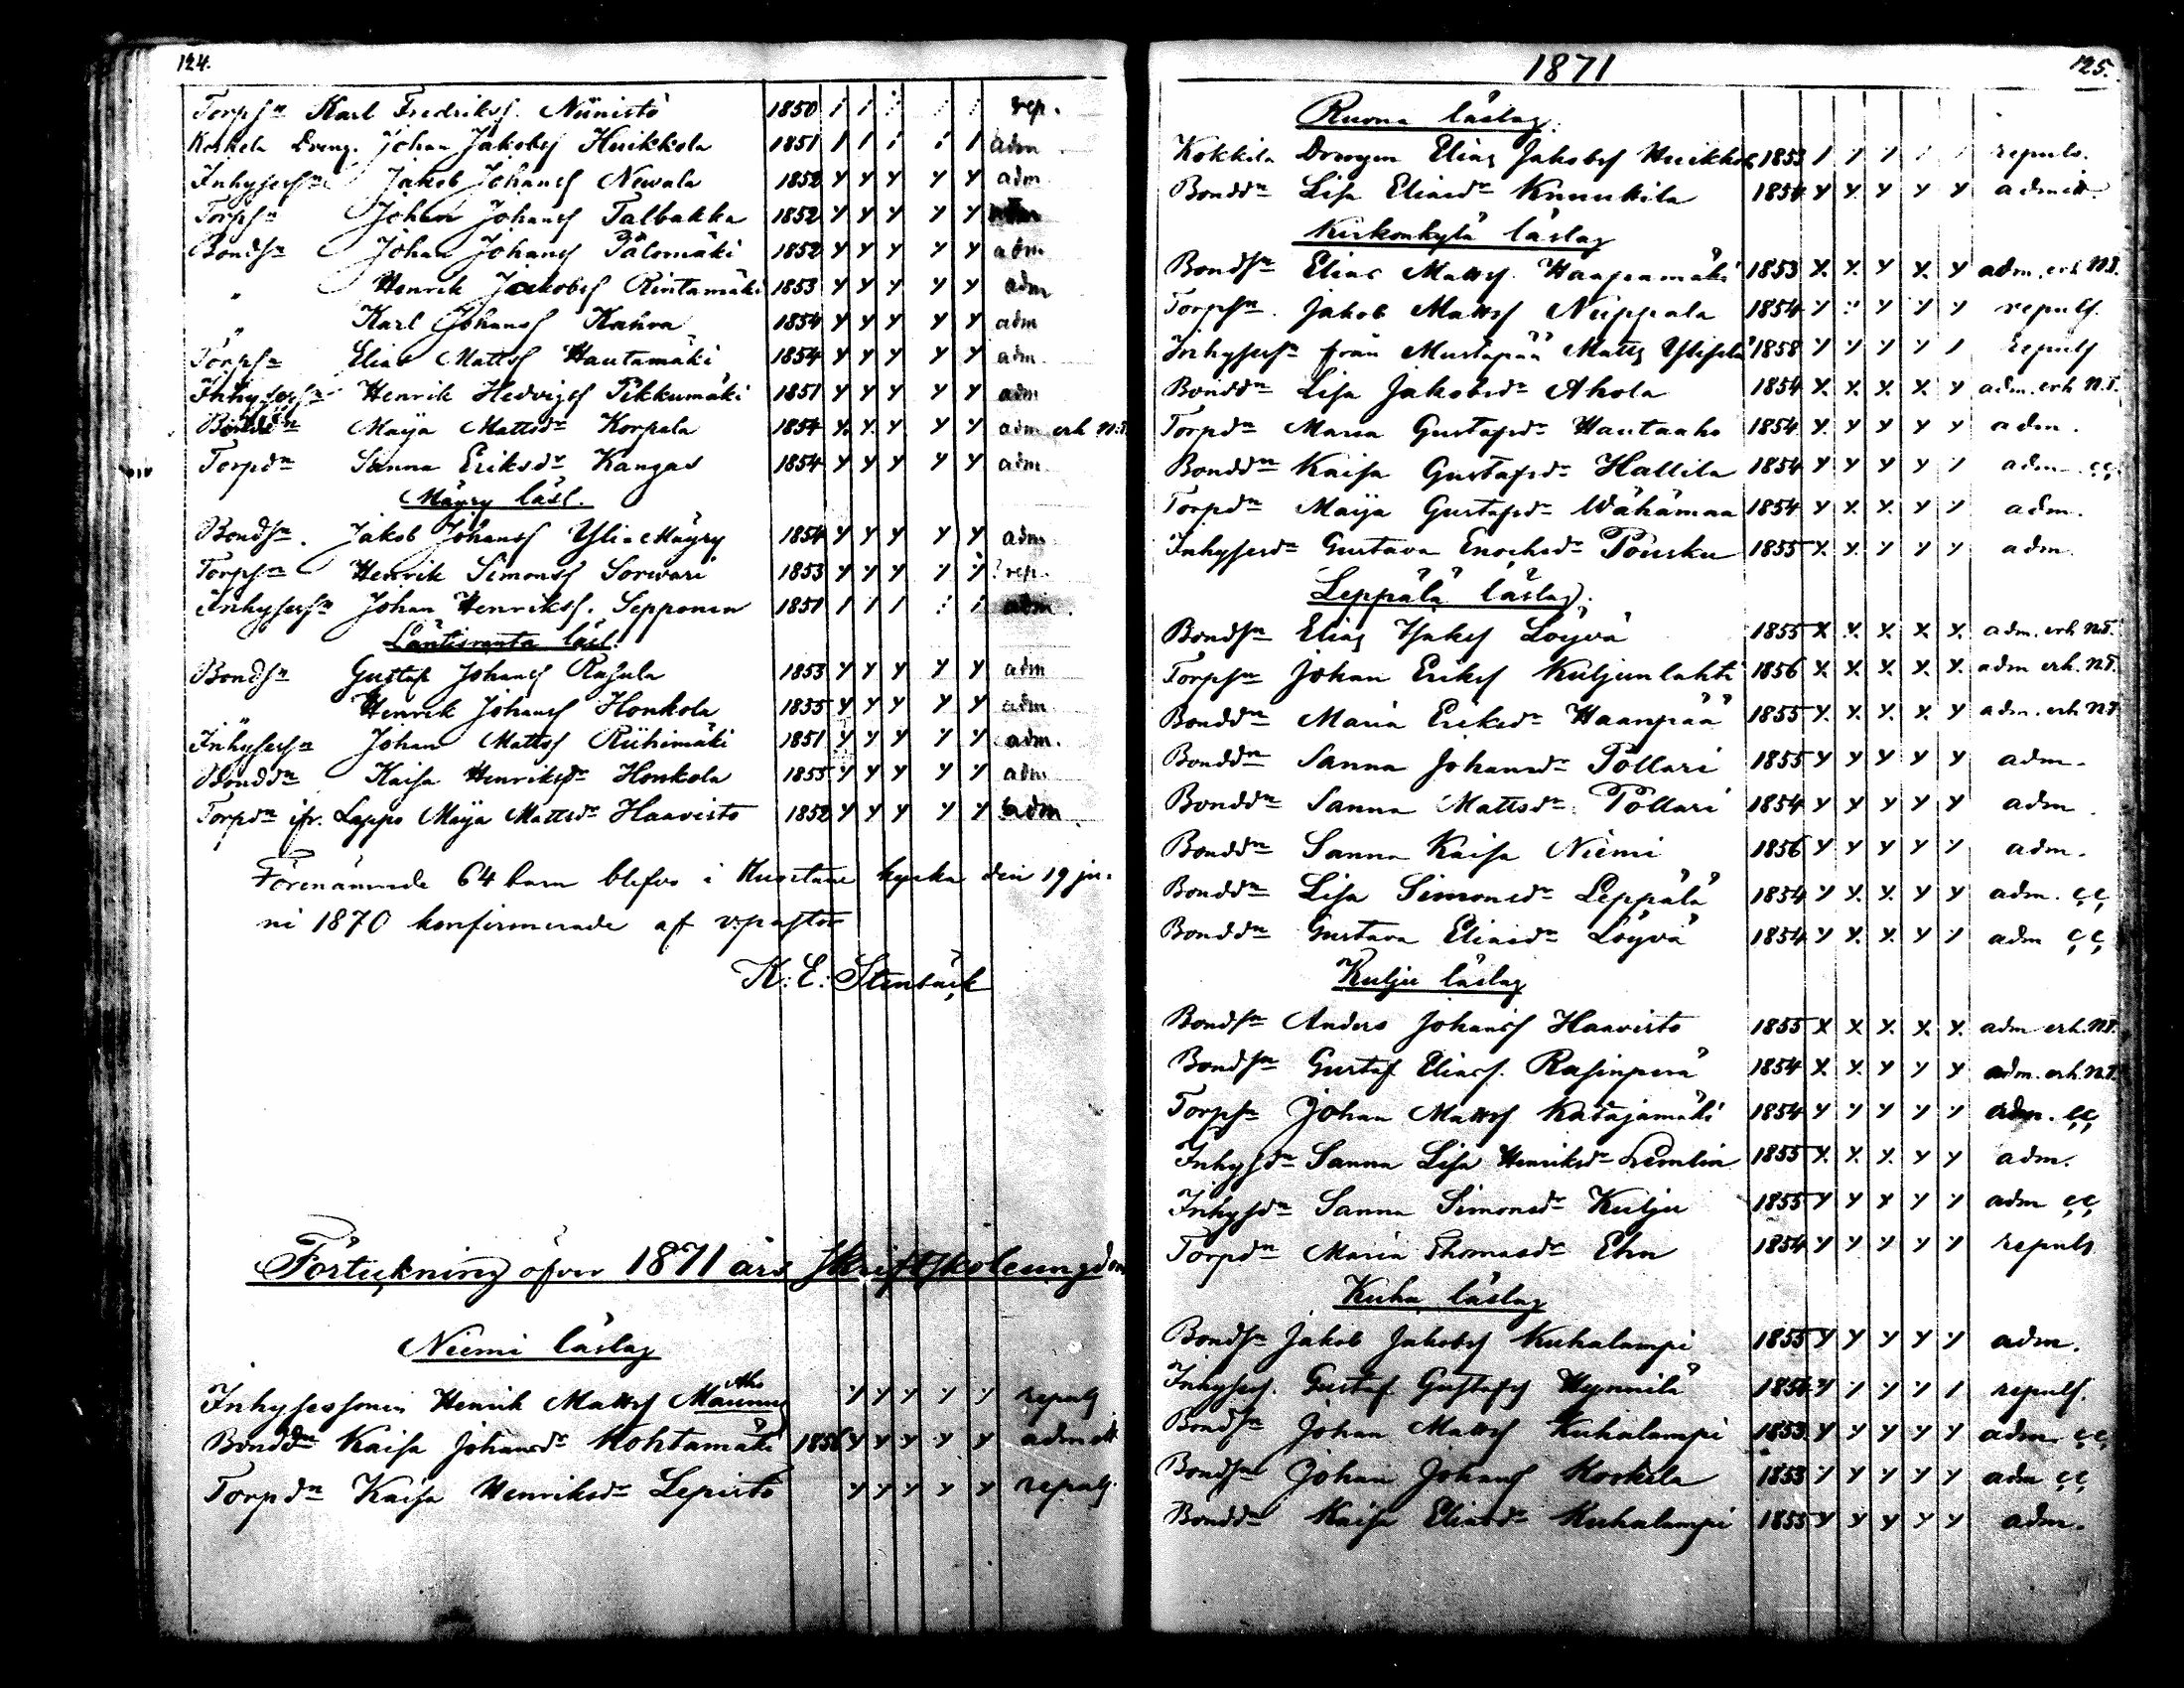 124.
Torpsn Karl Fredriksf. Niinistö 1850 rep.
Koskela Dreng. Johan Jakobsf Huikkola 1851 adm
Inhysessn Jakob Johansf Newala 1852 adm
Torpsn Johan Johansf Talbakka 1852
Bondsn Johan Johansf Pälomäki 1852 adm
" Henrik Jakobsf Rintamäki 1853 adm
" Karl Johansf Kahra 1854 adm
Torpsn Elias Mattsf Hautamäki 1854 adm.
Inhysessn Henrik Hedvigsf Pikkumäki 1851 adm
Maija Mattsdr Korpela 1854 adm erh N.T.
Torpdn Sanna Eriksdr Kangas 1854 adm
Mäyry läsl.
Bondsn. Jakob Johansf Yli Mäyry 1854 adm
Torpsn Henrik Simonsf Sorvari 1853 rep.
Inhysessn Johan Henriksf. Sepponen 1851 adm
Läntisranta läsl.
Bondsn Gustaf Johansf Rasula 1853 adm
Henrik Johansf Honkola 1855 adm
Inhysessn Johan Mattsf Riihimäki 1851 adm.
Bonddn Kaisa Henriksdr Honkola 1855 adm
Torpdn ifr. Lappo Maija Mattsdr Haavisto 1852 adm
Förenämnde 64 barn blefvo i Kuortane kyrka den 19 ju-
ni 1870 konfirmerade af v:pastor
K. E. Stenbäck
Förteckning öfver 1871 års Skriftskoleungdom
Niemi läslag
Aho
Inhysessonen Henrik Mattsf Maunus repuls
Bonddn Kaisa Johansdr Kohtamäki 1856 admitt
Torpdn Kaisa Henriksdr Lepistö repuls.
1871
125.
Ruona läslag.
Kokkila Drengen Elias Jakobsf Huikkola 1853 repuls.
Bonddn Lisa Eliasdr Knuuttila 1854 admitt.
Kirkonkylä läslag
Bondsn Elias Mattsf. Haapamäki 1853 adm. erh N.T.
Torpsn. Jakob Mattsf Niippala 1854 repuls.
Inhysessn från Mustapää Matts Ylisela 1858 repuls
Bonddn Lisa Jakobsdr Ahola 1854 adm. erh N.T.
Torpdn Maria Gustafsdr Hautaaho 1854 adm.
Bonddn Kaisa Gustafsdr Hallila 1854 adm çç
Torpdn Maija Gustafsdr Wähämaa 1854 adm.
Inhysesdn Gustava Enochsdr Pousku 1855 adm.
Leppälä läslag.
Bondsn Elias Isaksf Löyvä 1855 adm. erh N.T.
Torpsn Johan Eriksf Kuljunlahti 1856 adm erh. N.T.
Bonddn Maria Eriksdr Haanpää 1855 adm. erh N.T.
Bonddn Sanna Johansdr Pollari 1855 adm.
Bonddn Sanna Mattsdr Pollari 1854 adm
Bonddn Sanna Kaisa Niemi 1856 adm.
Bonddn Lisa Simonsdr Leppälä 1854 adm. çç
Bonddn Gustava Eliasdr Löyvä 1854 adm çç
Kulju läslag
Bondsn Anders Johansf Haavisto 1855 adm erh. N.T.
Bondsn Gustaf Eliasf. Rasinperä 1854 adm. erh. N.T.
Torpsn Johan Mattsf Katajamäki 1854 adm. çç
Inhysdn Sanna Lisa Henriksdr 1855 adm.
Inhysdn Sanna Simonsdr Kulju 1855 adm çç
Torpdn Maria Thomasdr Ehn 1854 repuls
Kuha läslag
Bondsn Jakob Jakobsf Kuhalampi 1855 adm.
Inhysess. Gustaf Gustafsf Hynnilä 1854 repuls.
Bondsn Johan Mattsf Kuhalampi 1853 adm çç
Bondsn Johan Johansf Koskela 1853 adm çç
Bonddn Kaisa Eliasdr Kuhalampi 1855 adm.